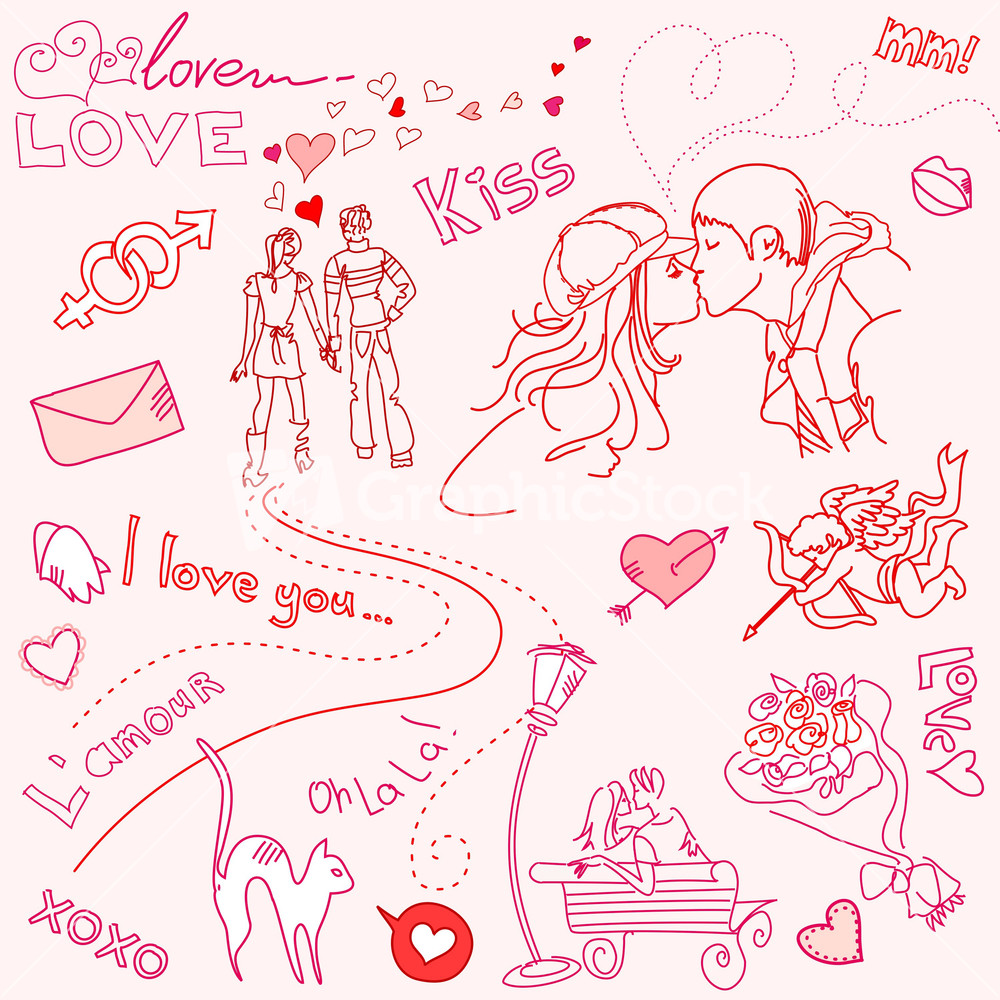 love
LOVE
mm!
Kiss
GraphicStock
I love you...
L'amour
LOVe
Oh La La!
XOXO